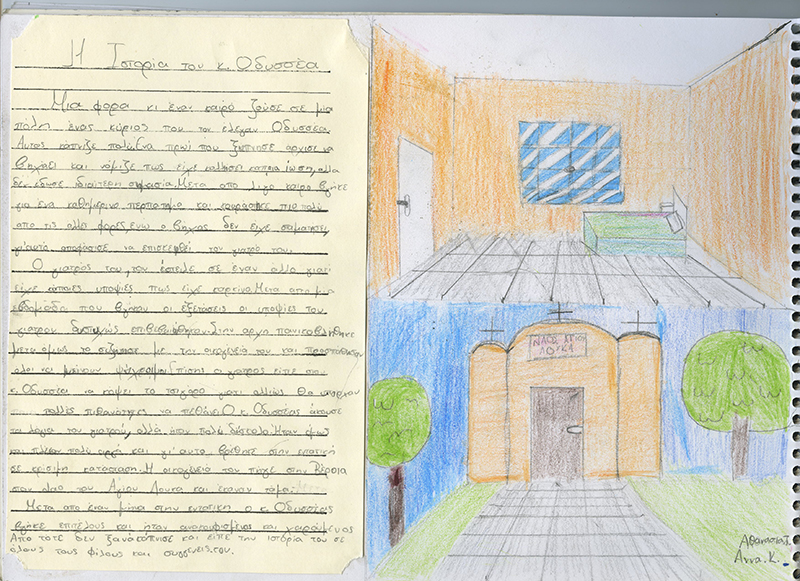 Η Ιστορία του κ. Οδυσσέα
Μια φορα κι έναν καιρό ζούσε σε μία
πόλη ένας κύριος που τον έλεγαν Οδυσσέα.
Αυτος κάπνιζε πολύ. Ένα πρωί που ξύπνησε άρχισε να
βήχει και νόμιζε πως είχε κολλήσει κάποια ίωση, αλλα
δεν έδωσε ιδιαίτερη σημασία. Μετα απο λιγο καιρο βγήκε
για ένα καθημερινο περπατημα και κουράστηκε πιο πολύ
απο τις αλλες φορες ενω ο βηχας δεν είχε σταματησει,
γι'αυτό αποφάσισε να επισκεφθεί τον γιατρό του.
Ο γιατρός του, τον έστειλε σε έναν άλλο γιατί
είχε κάποιες υποψίες πως είχε καρκίνο. Μετα απο μια
εβδομάδα που βγήκαν οι εξετάσεις οι υποψίες του
γιατρου δυστυχώς επιβεβαιώθηκαν. Στην αρχη πανικοβλήθηκε
μετα ομως το συζήτησε με την οικογένεια του και προσπάθησαν
ολοι να μείνουν ψύχραιμοι. Επίσης οι γιατρος είπε στον
κ. Οδυσσέα να κόψει το τσιγάρο γιατι αλλιώς θα υπηρχαν
πολλές πιθανότητες να πεθάνει. Ο κ. Οδυσσέας άκουσε
τα λόγια του γιατρού, αλλά ήταν πολύ δύσκολο. Ήταν όμως
και πλέον πολύ αργά και γι'αυτο βρέθηκε στην εντατική
σε κρίσιμη κατασταση. Η οικογένεια του πήγε στην
στον ναο του Αγιου Λουκα και έκαναν τάμα.
Μετα απο έναν μήνα στην εντατικη ο κ. Οδυσσέας
βγήκε επιτέλους και ήταν ανακουφισμένος και χαρούμενος
Απο τοτε δεν ξανακάπνισε και είπε την ιστορία του σε
όλους τους φίλους και συγγενείς του.
ΝΑΟΣ ΑΓΙΟΥ
ΛΟΥΚΑ
Αθανασία Τ.
Άννα. Κ.